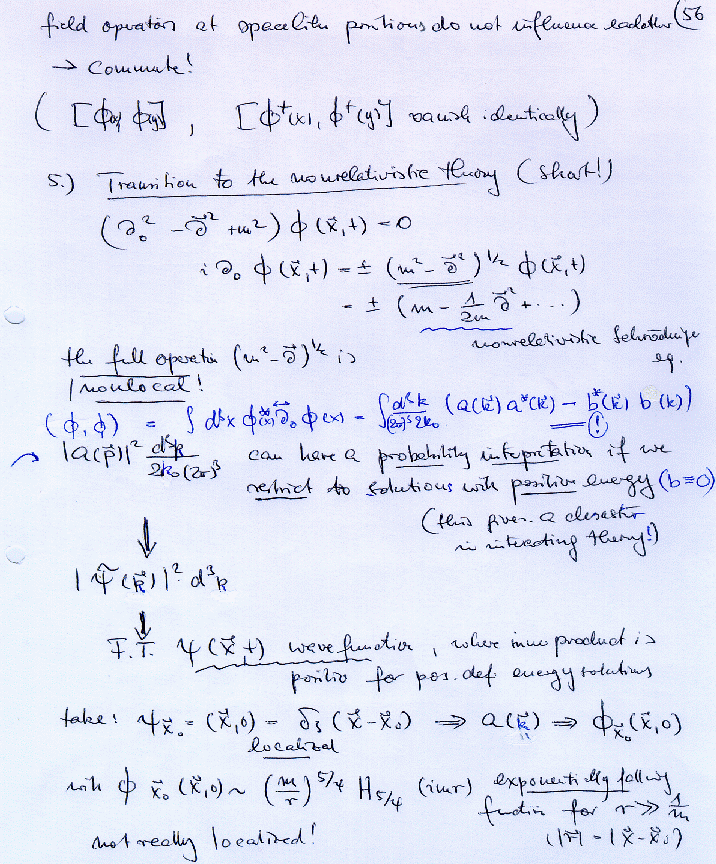 field operators at spacelike positions do not influence each other (56
→ commute!
( [ϕ(x), ϕ(y)] , [ϕ⁺(x), ϕ⁺(y)] vanish identically )
5.) Transition to the nonrelativistic theory (short!)
(∂₀² − ∂⃗² + m²) ϕ(x⃗,t) = 0
i ∂₀ ϕ(x⃗,t) = ± (m² − ∂⃗²)^{1/2} ϕ(x⃗,t)
= ± (m − 1/2m ∂⃗² + ...)
nonrelativistic Schrödinger
eq.
the full operator (m² − ∂⃗)^{1/2} is
nonlocal!
(ϕ, ϕ) = ∫ d³x ϕ*(x) ∂₀ ϕ(x) = ∫ d³k/(2π)³2k₀ (a(k⃗) a*(k⃗) − b*(k⃗) b(k⃗))
(!)
|a(p⃗)|² d³k/2k₀(2π)³ can have a probability interpretation if we
restrict to solutions with positive energy (b≡0)
(this gives a desaster
in interacting theory!)
↓
|ψ̃(k⃗)|² d³k
↓
F.T. ψ(x⃗,t) wavefunction, where inner product is
positiv for pos. def energy solutions
take: ψ_{x⃗₀} = (x⃗,0) = δ₃(x⃗−x⃗₀) ⇒ a(k⃗) ⇒ ϕ_{x⃗₀}(x⃗,0)
localized
with ϕ_{x⃗₀}(x⃗,0) ~ (m/r)^{5/4} H_{5/4} (imr) exponentially falling
function for r ≫ 1/m
not really localized! (|r⃗| = |x⃗−x⃗₀|)